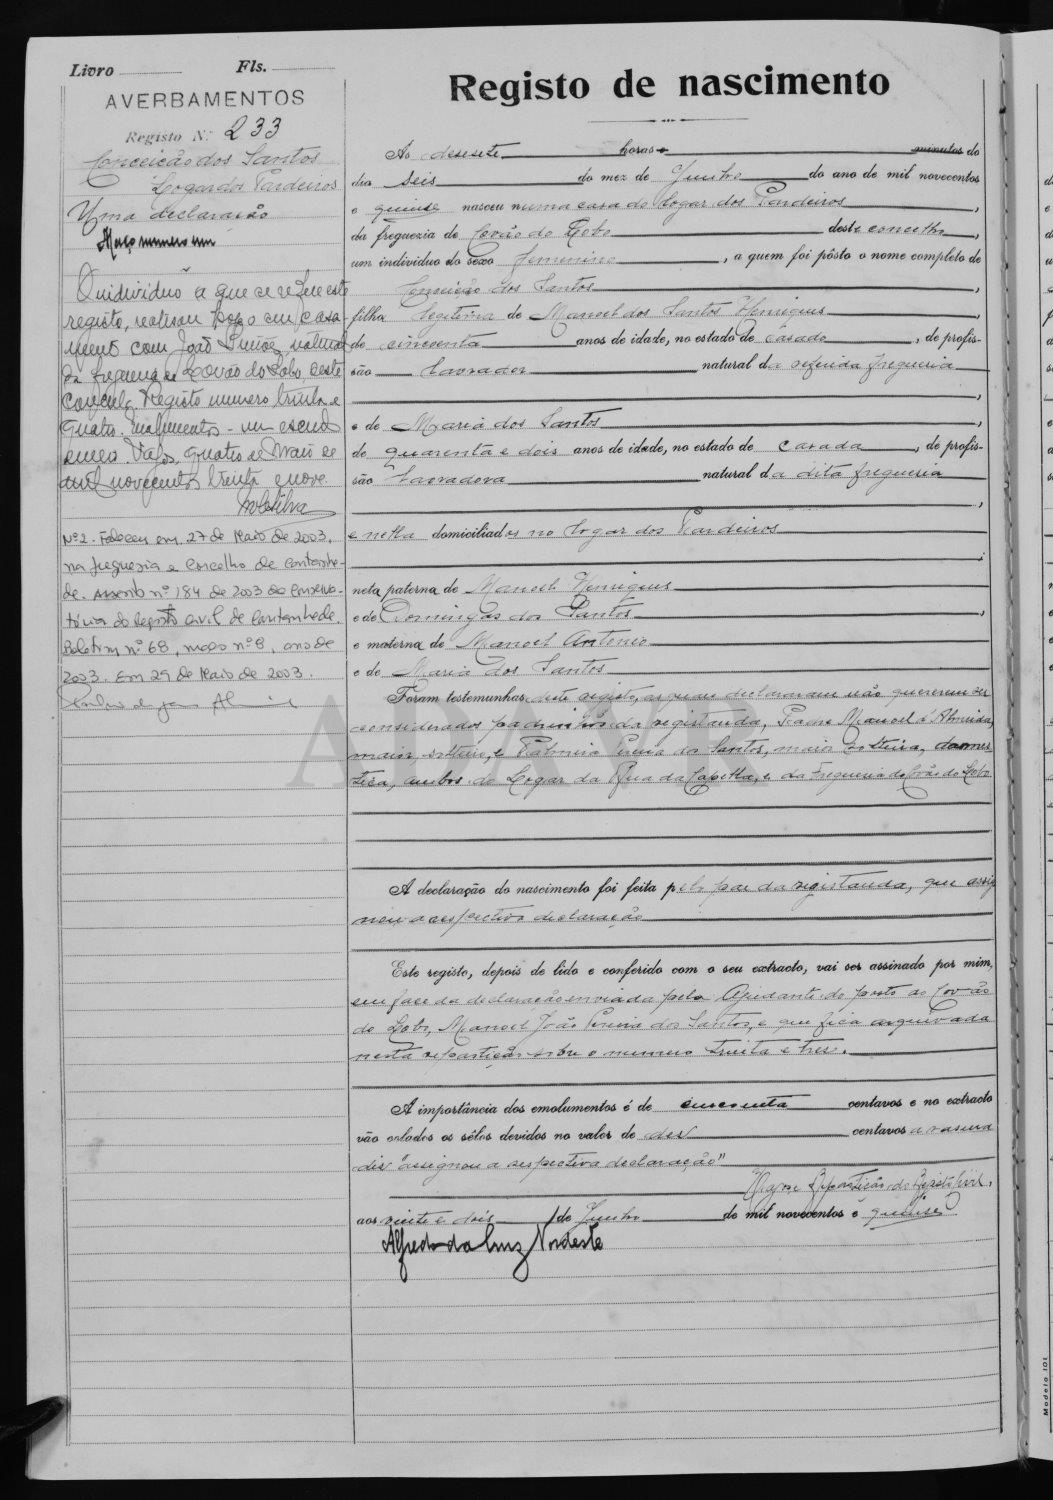 Livro Fls.
AVERBAMENTOS
Registo N.º 233
Conceição dos Santos
Logar dos Pardeiros
Uma declaração
Maço numero um
O individuo a que se refere este
registo, realisou hoje o seu casa-
mento com João natural
da freguesia de Covão do Lobo, deste
concelho. Registo numero trinta e
quatro. Emolumentos - um escudo
Vagos, quatro de Maio de
mil novecentos trinta e nove.
Nº 2 - Faleceu em 27 de Maio de 2003,
na freguesia e concelho de Cantanhe-
de. Assento nº 184 de 2003 da Conserva-
tória do Registo Civil de Cantanhede.
Boletim nº 68, maço nº 8, ano de
2003. Em 29 de Maio de 2003.
Registo de nascimento
Ás desesete horas e minutos do
dia seis do mez de Junho do ano de mil novecentos
e quinse nasceu numa casa do logar dos Pardeiros,
da freguezia de Covão do Lobo deste concelho,
um individuo do sexo femenino, a quem foi pôsto o nome completo de
Conceição dos Santos
filha legitima de Manoel dos Santos Henriques,
de cincoenta anos de idade, no estado de casado, de profis-
são Lavrador natural da referida freguesia,
e de Maria dos Santos,
de quarenta e dois anos de idade, no estado de casada, de profis-
são Lavradora natural da dita freguesia,
e nella domiciliados no logar dos Pardeiros;
neta paterna de Manoel Henriques
e de Domingas dos Santos,
e materna de Manoel Antonio
e de Maria dos Santos
Foram testemunhas deste registo, as quaes declararam não quererem ser
considerados padrinhos da registanda, Manoel d'Almeida,
maior, solteiro, e Palmira dos Santos, maior, solteira, domes
tica, ambos do Logar da Rua da Capella, e da freguesia do Covão do Lobo
A declaração do nascimento foi feita pelo pae da registanda, que assig
nou a respectiva declaração
Este registo, depois de lido e conferido com o seu extracto, vai ser assinado por mim,
em face da declaração enviada pelo Ajudante do posto do Covão
do Lobo, Manoel João Pereira dos Santos, e que fica arquivada
nesta repartição sobre o numero trinta e tres.
A importância dos emolumentos é de cincoenta centavos e no extracto
vão colados os sêlos devidos no valor de dez centavos a rasura
diz "assignou a respectiva declaração"
Repartição do Registo Civil,
aos vinte e dois de Junho de mil novecentos e quinse
Alfredo da Cruz Nordeste
ADAVR
Modelo 101